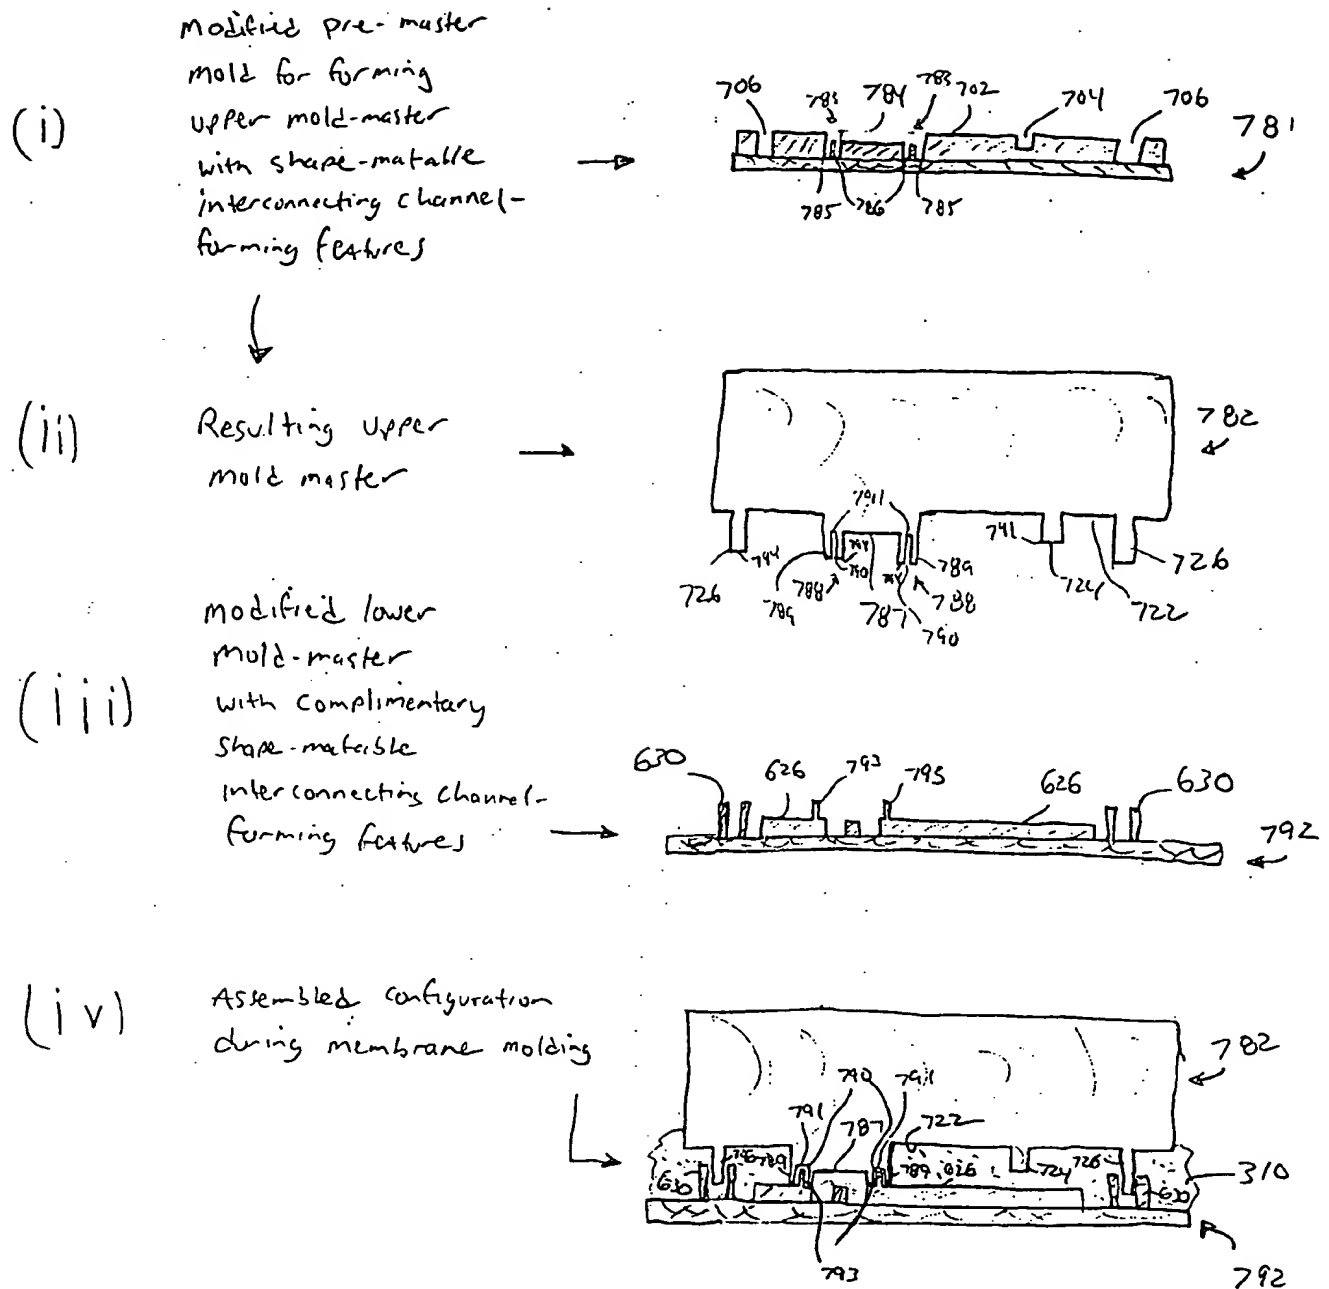 (i)
Modified pre-master
mold for forming
upper mold-master
with shape-matable
interconnecting channel-
forming features
706
783
784
783
702
704
706
781
785
786
785
(ii)
Resulting upper
mold master
782
791
741
726
744
789
788
790
787
790
788
789
724
722
726
(iii)
modified lower
mold-master
with complimentary
shape-mateible
interconnecting channel-
forming features
630
626
793
793
626
630
792
(iv)
Assembled configuration
during membrane molding
782
791
790
787
791
722
630
789
789
626
724
726
630
310
793
792